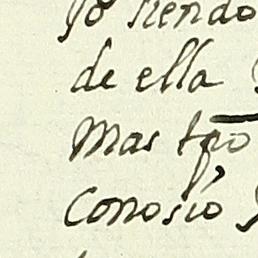 yo siendo
de ella
Mas tpo
Conosio